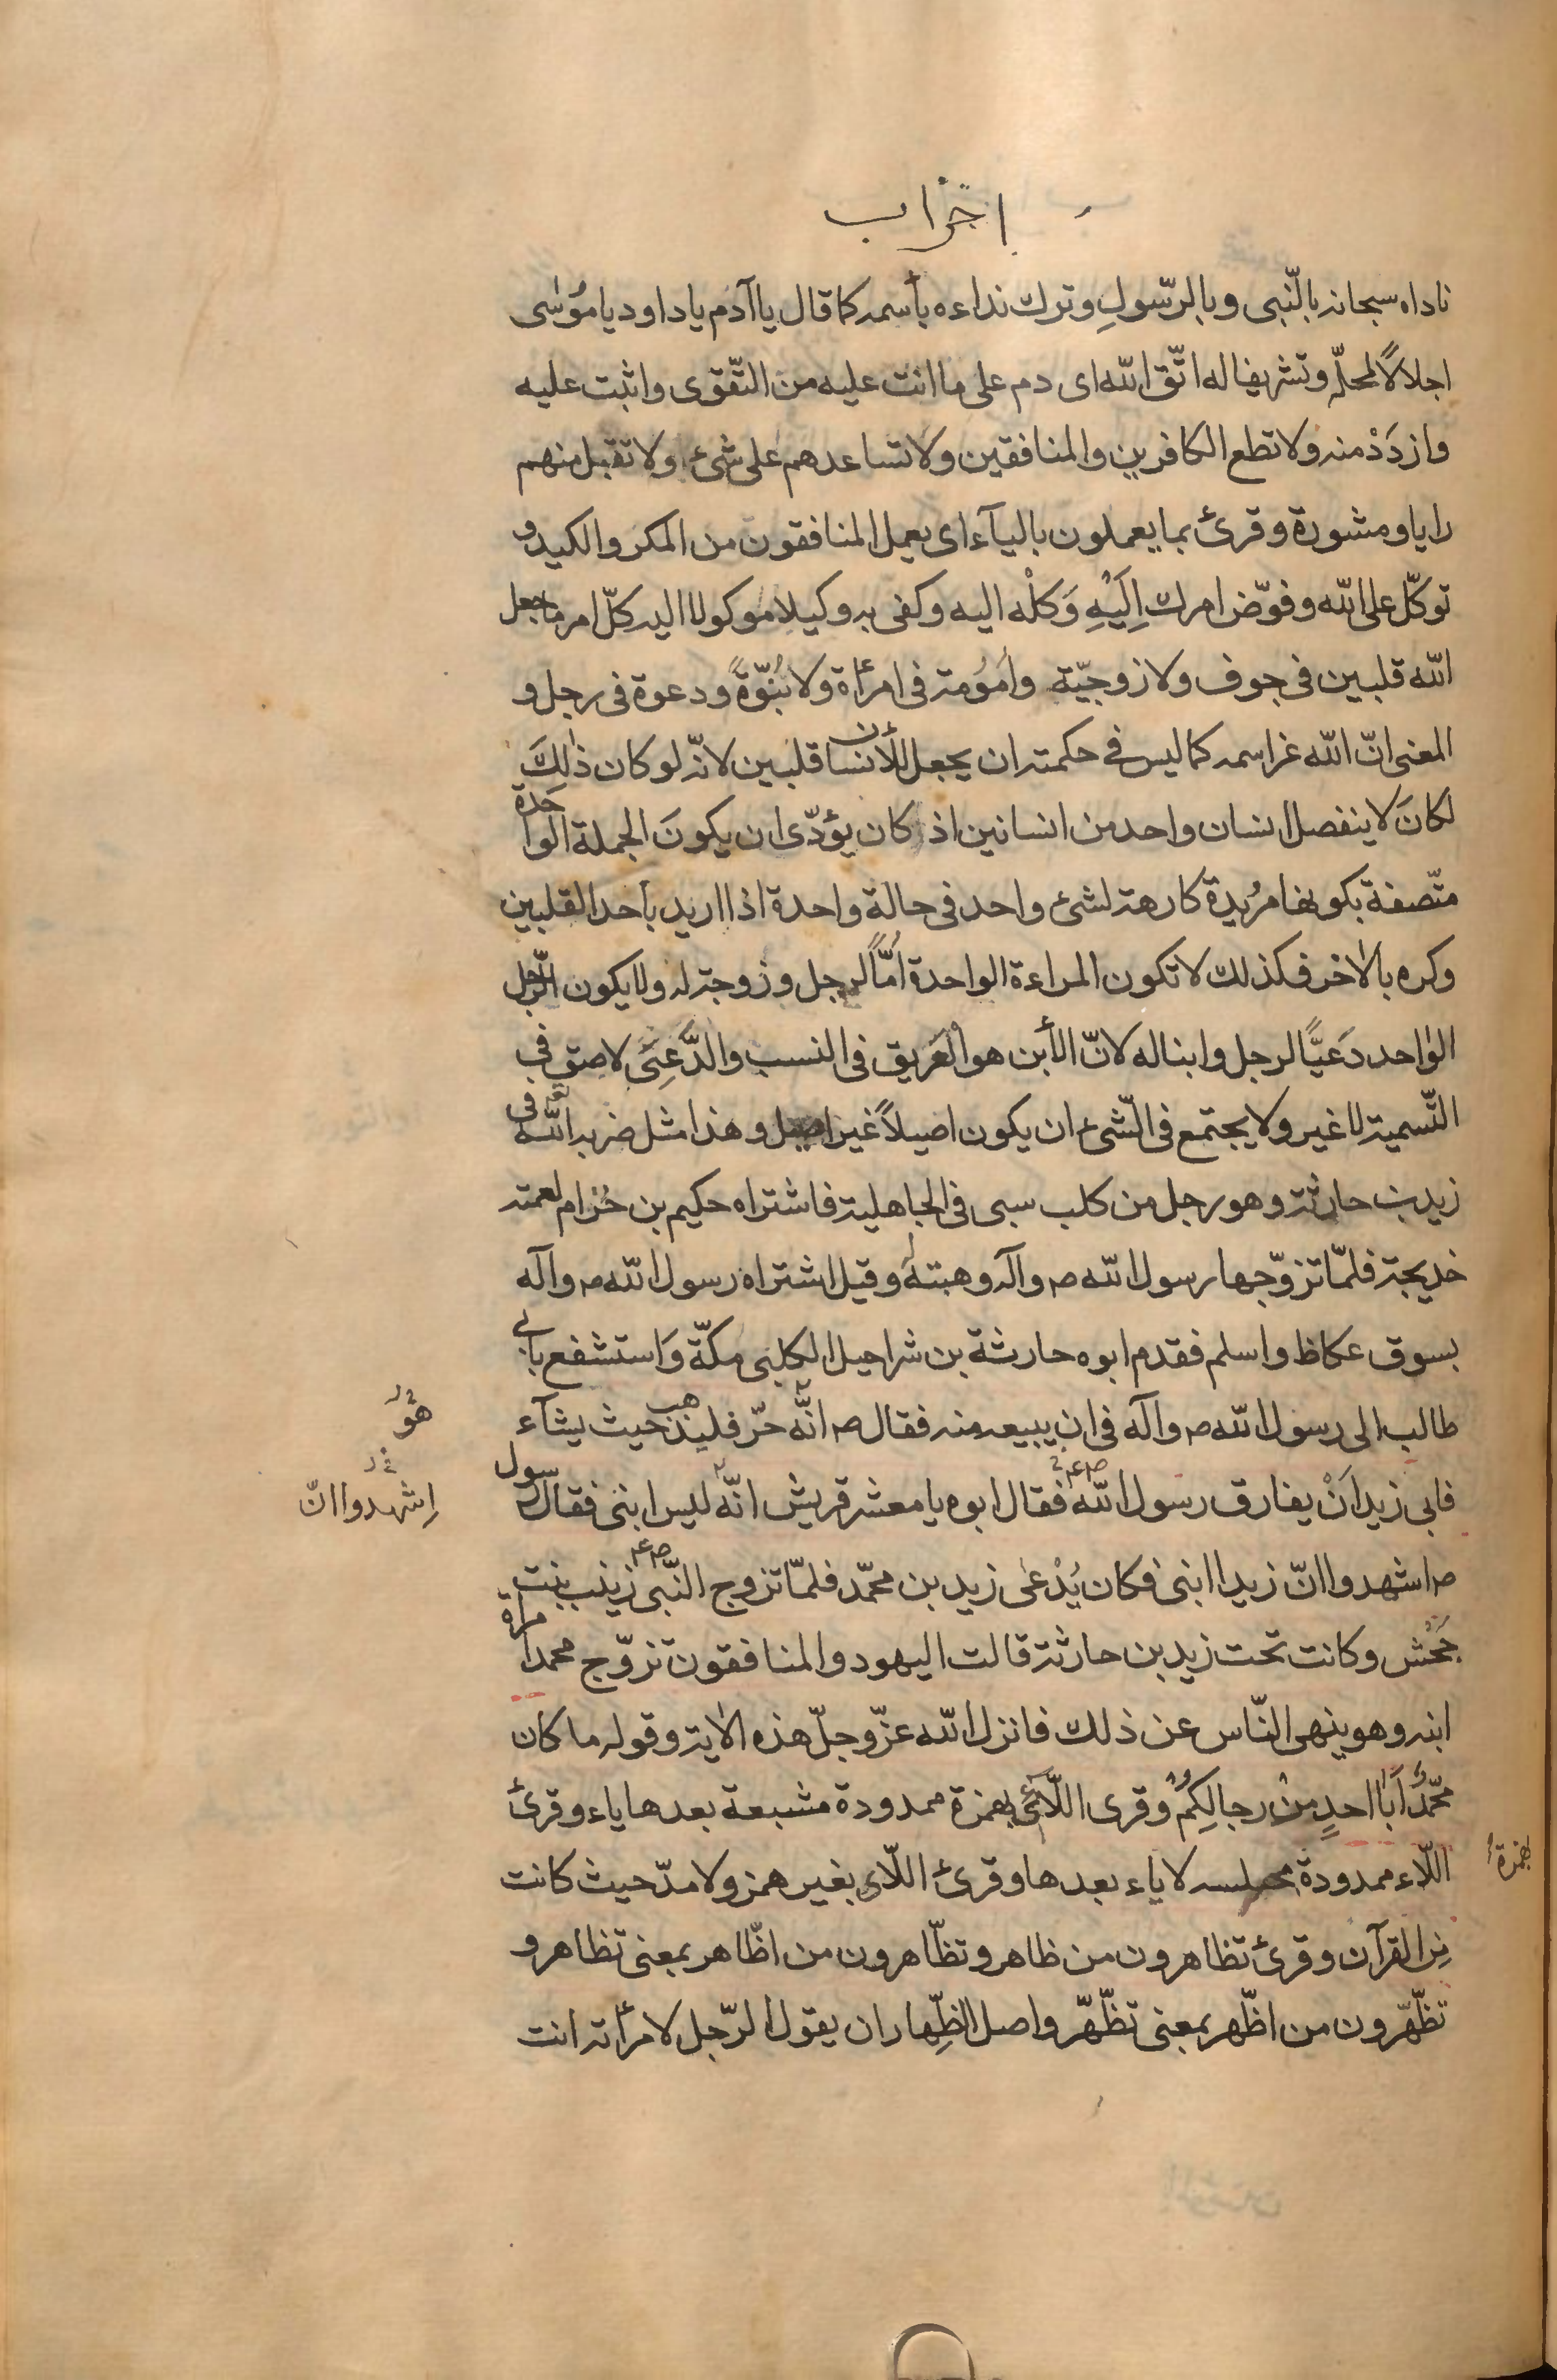 احزاب
ناداه سبحانه بالنّبى وبالرّسولِ وترك نداءه بأسمه كما قال يا آدم يا داود يا موُسٰى
اجلالاً لمحلّه وتشريفا له اتّق الله اى دم على ما انت عليه من التّقوى واثبت عليه
وازدَدْ منه ولا تطع الكافرين والمنافقين ولا تساعدهم على شئ ولا تقبل منهم
رايا ومشورة وقرئ بما يعملون باليآء اى يعمل المنافقون من المكر والكيد و
توكّل على الله وفوّض امرك اِلَيْهِ وَكلْه اليه وكفى به وكيلا موكولا اليه كلّ امر ما جعل
الله قلبين فى جوف ولا زوجيّة وامَوُمة فى امرأة ولا بُنُوّةً ودعوة فى رجل و
المعنى انّ الله عز اسمه كما ليس فى حكمته ان يجعل للأنسان قلبين لانّه لو كان ذٰلِكَ
لكانَ لا ينفصل انسان واحد من انسانين اذ كان يؤدّى ان يكونَ الجملة الواحدة
متّصفة بكونها مرُيدة كارهة لشئ واحد فى حالة واحدة اذا اريد بأحد القلبين
وكره بالاخر فكذلك لا تكون المراءة الواحدة امُّاً لرجل وزوجة له ولا يكون الرّجل
الواحد دَعيًّا لرجل وابنا له لانّ الأبن هو العَريق فى النسب والدَّعِىّ لاصق فى
التّسمية لا غير ولا يجتمع فى الشّئ ان يكون اصيلاً غير اصيل وهذا مثل ضربه الله فى
زيد بن حارثة وهو رجل من كلب سبى فى الجاهلية فاشتراه حكيم بن حُزام لعمته
خديجة فلمّا تزوّجها رسول الله ص وآله وهبته له وقيل اشتراه رسول الله ص وآله
بسوق عكاظ واسلم فقدم ابوه حارثة بن شراحيل الكلبى مكّة وَاستشفع بابى
طالب الى رسول الله ص وآله فى ان يبيعه منه فقال ص انَّه حرّ فليذهب حيث يشآء
هوُ
فابى زيد انْ يفارق رسول الله فقال ابوه يا معشر قريش انّه ليس ابنى فقال رسول
اِشهدوا انّ
ص اشهدوا انّ زيدا ابنى فكان يُدْعٰى زيد بن محمّد فلمّا تزوج النّبى زينب بنت
جَحْش وكانت تحت زيد بن حارثة قالت اليهود والمنافقون تزوّج محمد امراة
ابنه وهو ينهى النّاس عن ذلك فانزل الله عزّ وجلّ هذه الاٰية وقوله ما كان
محمّدٌ اَبَا احدٍ منْ رجالِكُمْ وقرى اللّائى بهمزة ممدودة مشبعة بعدها ياء وقرئ
بهمزةُ
اللّاء ممدودة لا ياء بعدها وقرئ اللّاى بغير همز ولا مدّ حيث كانت
مِن القرآن وقرئ تظاهرون من ظاهر وتظّاهرون من اظّاهر بمعنى تظاهر و
تظّهّرون من اظّهر بمعنى تظّهّر واصل الظِّهار ان يقول الرّجل لامرأته انت